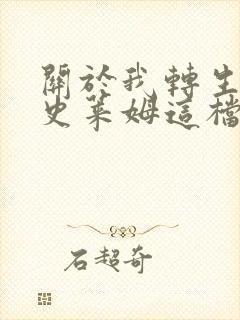 關於我轉生
史萊姆這檔
石超奇